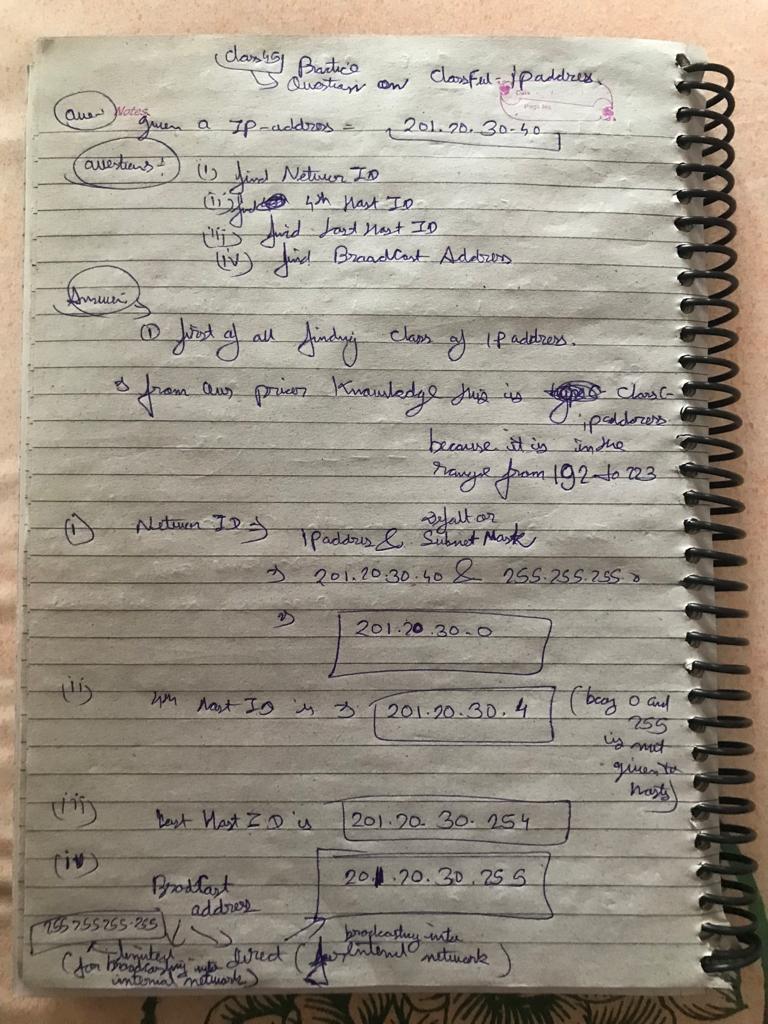 Class 45
Practice
Question on Classful-IPaddress.
Ques Notes
Date
Page No.
given a IP-address = 201.20.30.40
Questions:
(i) find Networ ID
(ii) find 4th Host ID
(iii) find Last Host ID
(iv) find BroadCast Address
Answer
(i) first of all finding class of IP address.
from our prior Knowledge this is Class C-
ipaddress
because it is in the
range from 192 to 223
(i) Networ ID ⇒ IPaddres & Defalt or
Subnet Mask
⇒ 201.20.30.40 & 255.255.255.0
⇒ 201.20.30.0
(ii) 4th Host ID is ⇒ 201.20.30.4 (bcoz 0 and
255
is not
given to
hosts)
(iii) Last Host ID is 201.20.30.254
(iv) BrodCast
address 201.20.30.255
255.255.255.255
limited
(for broadcasting into
internal network)
direct ( broadcasting into
network )